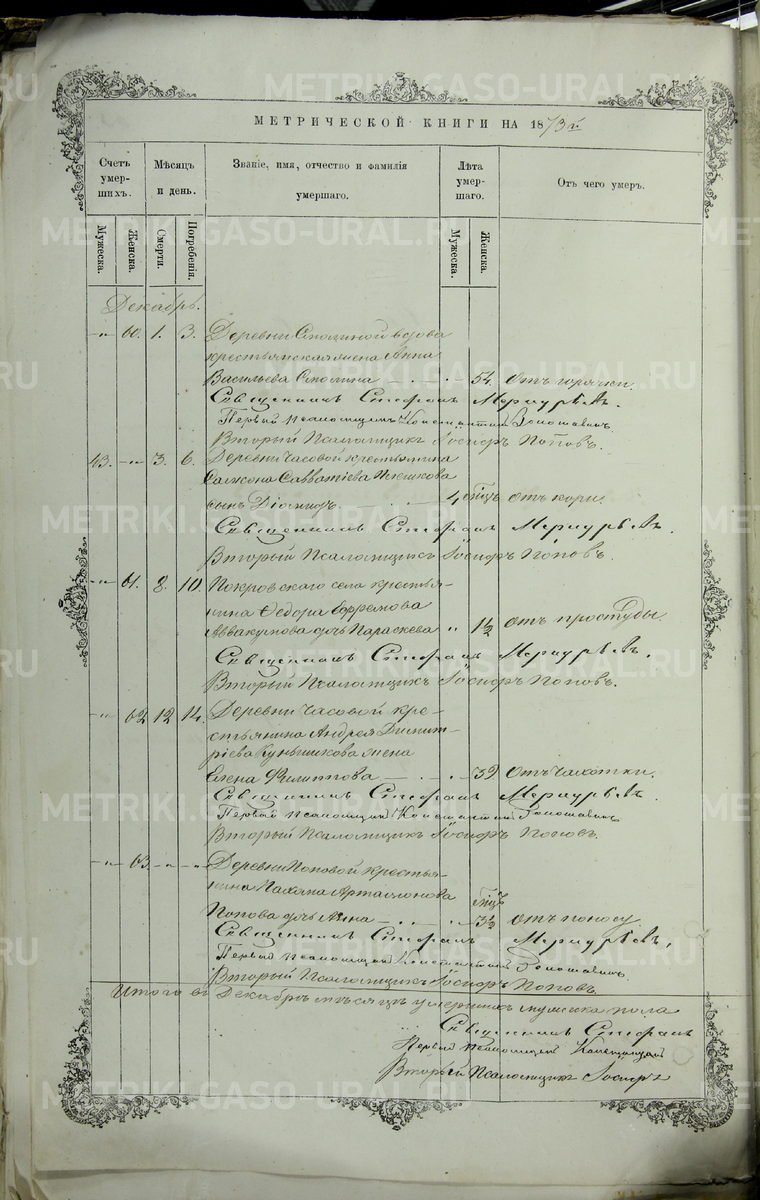 МЕТРИЧЕСКОЙ КНИГИ НА 1873й
Счетъ умер-шихъ. Мѣсяцъ и день. Званіе, имя, отчество и фамилія умершаго. Лѣта умер-шаго. Отъ чего умеръ.
Мужеска. Женска. Смерти. Погребенія. Мужеска. Женска.
Декабрь.
-"- 60. 1. 3. Деревни вдова
крестьянская жена Анна
Васильева 54. отъ горячки.
Священникъ Стефанъ Меркурьевъ.
Первый псаломщикъ Константин
Вторый Псаломщикъ Іосифъ Поповъ.
43. -"- 3. 6. Деревни Часовой крестьянина
Савватіева
сынъ Діомидъ. 4 мѣц. отъ кори.
Священникъ Стефанъ Меркурьевъ.
Вторый Псаломщикъ Іосифъ Поповъ.
-"- 61. 8. 10. Покровскаго села крестья-
нина Ѳедора Ефремова
Аввакумова дочь Параскева " 1½ отъ простуды.
Священникъ Стефанъ Меркурьевъ.
Вторый Псаломщикъ Іосифъ Поповъ.
-"- 62. 12 14. Деревни Часовой кре-
стьянина Андрея Димит-
ріева жена
Елена Филиппова 39 отъ чахотки.
Священникъ Стефанъ Меркурьевъ.
Первый псаломщикъ Константин
Вторый Псаломщикъ Іосифъ Поповъ.
-"- 63. -"- -"- Деревни Поповой крестья-
нина Артамонова
Попова дочь Анна " мѣц. 3½ отъ поносу
Священникъ Стефанъ Меркурьевъ,
Первый псаломщикъ Константин
Вторый Псаломщикъ Іосифъ Поповъ.
Итого въ Декабрѣ мѣсяцѣ умершихъ мужеска пола
Священникъ Стефанъ
Первый псаломщикъ Константин
Вторый Псаломщикъ Іосифъ
METRIKI.GASO-URAL.RU